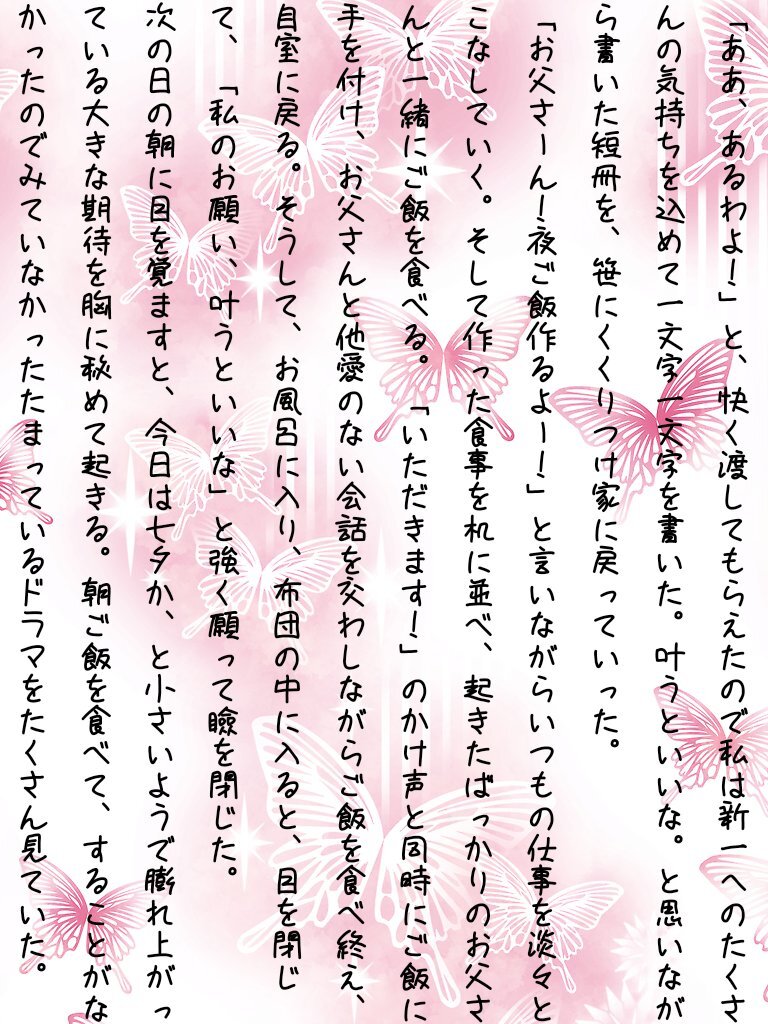 「ああ、あるわよ！」と、快く渡してもらえたので私は新一へのたくさ
んの気持ちを込めて一文字一文字を書いた。叶うといいな。と思いなが
ら書いた短冊を、笹にくくりつけ家に戻っていった。
「お父さーん！夜ご飯作るよー！」と言いながらいつもの仕事を淡々と
こなしていく。そして作った食事を机に並べ、起きたばっかりのお父さ
んと一緒にご飯を食べる。「いただきます！」のかけ声と同時にご飯に
手を付け、お父さんと他愛のない会話を交わしながらご飯を食べ終え、
自室に戻る。そうして、お風呂に入り、布団の中に入ると、目を閉じ
て、「私のお願い、叶うといいな」と強く願って瞼を閉じた。
次の日の朝に目を覚ますと、今日は七夕か、と小さいようで膨れ上がっ
ている大きな期待を胸に秘めて起きる。朝ご飯を食べて、することがな
かったのでみていなかったたまっているドラマをたくさん見ていた。